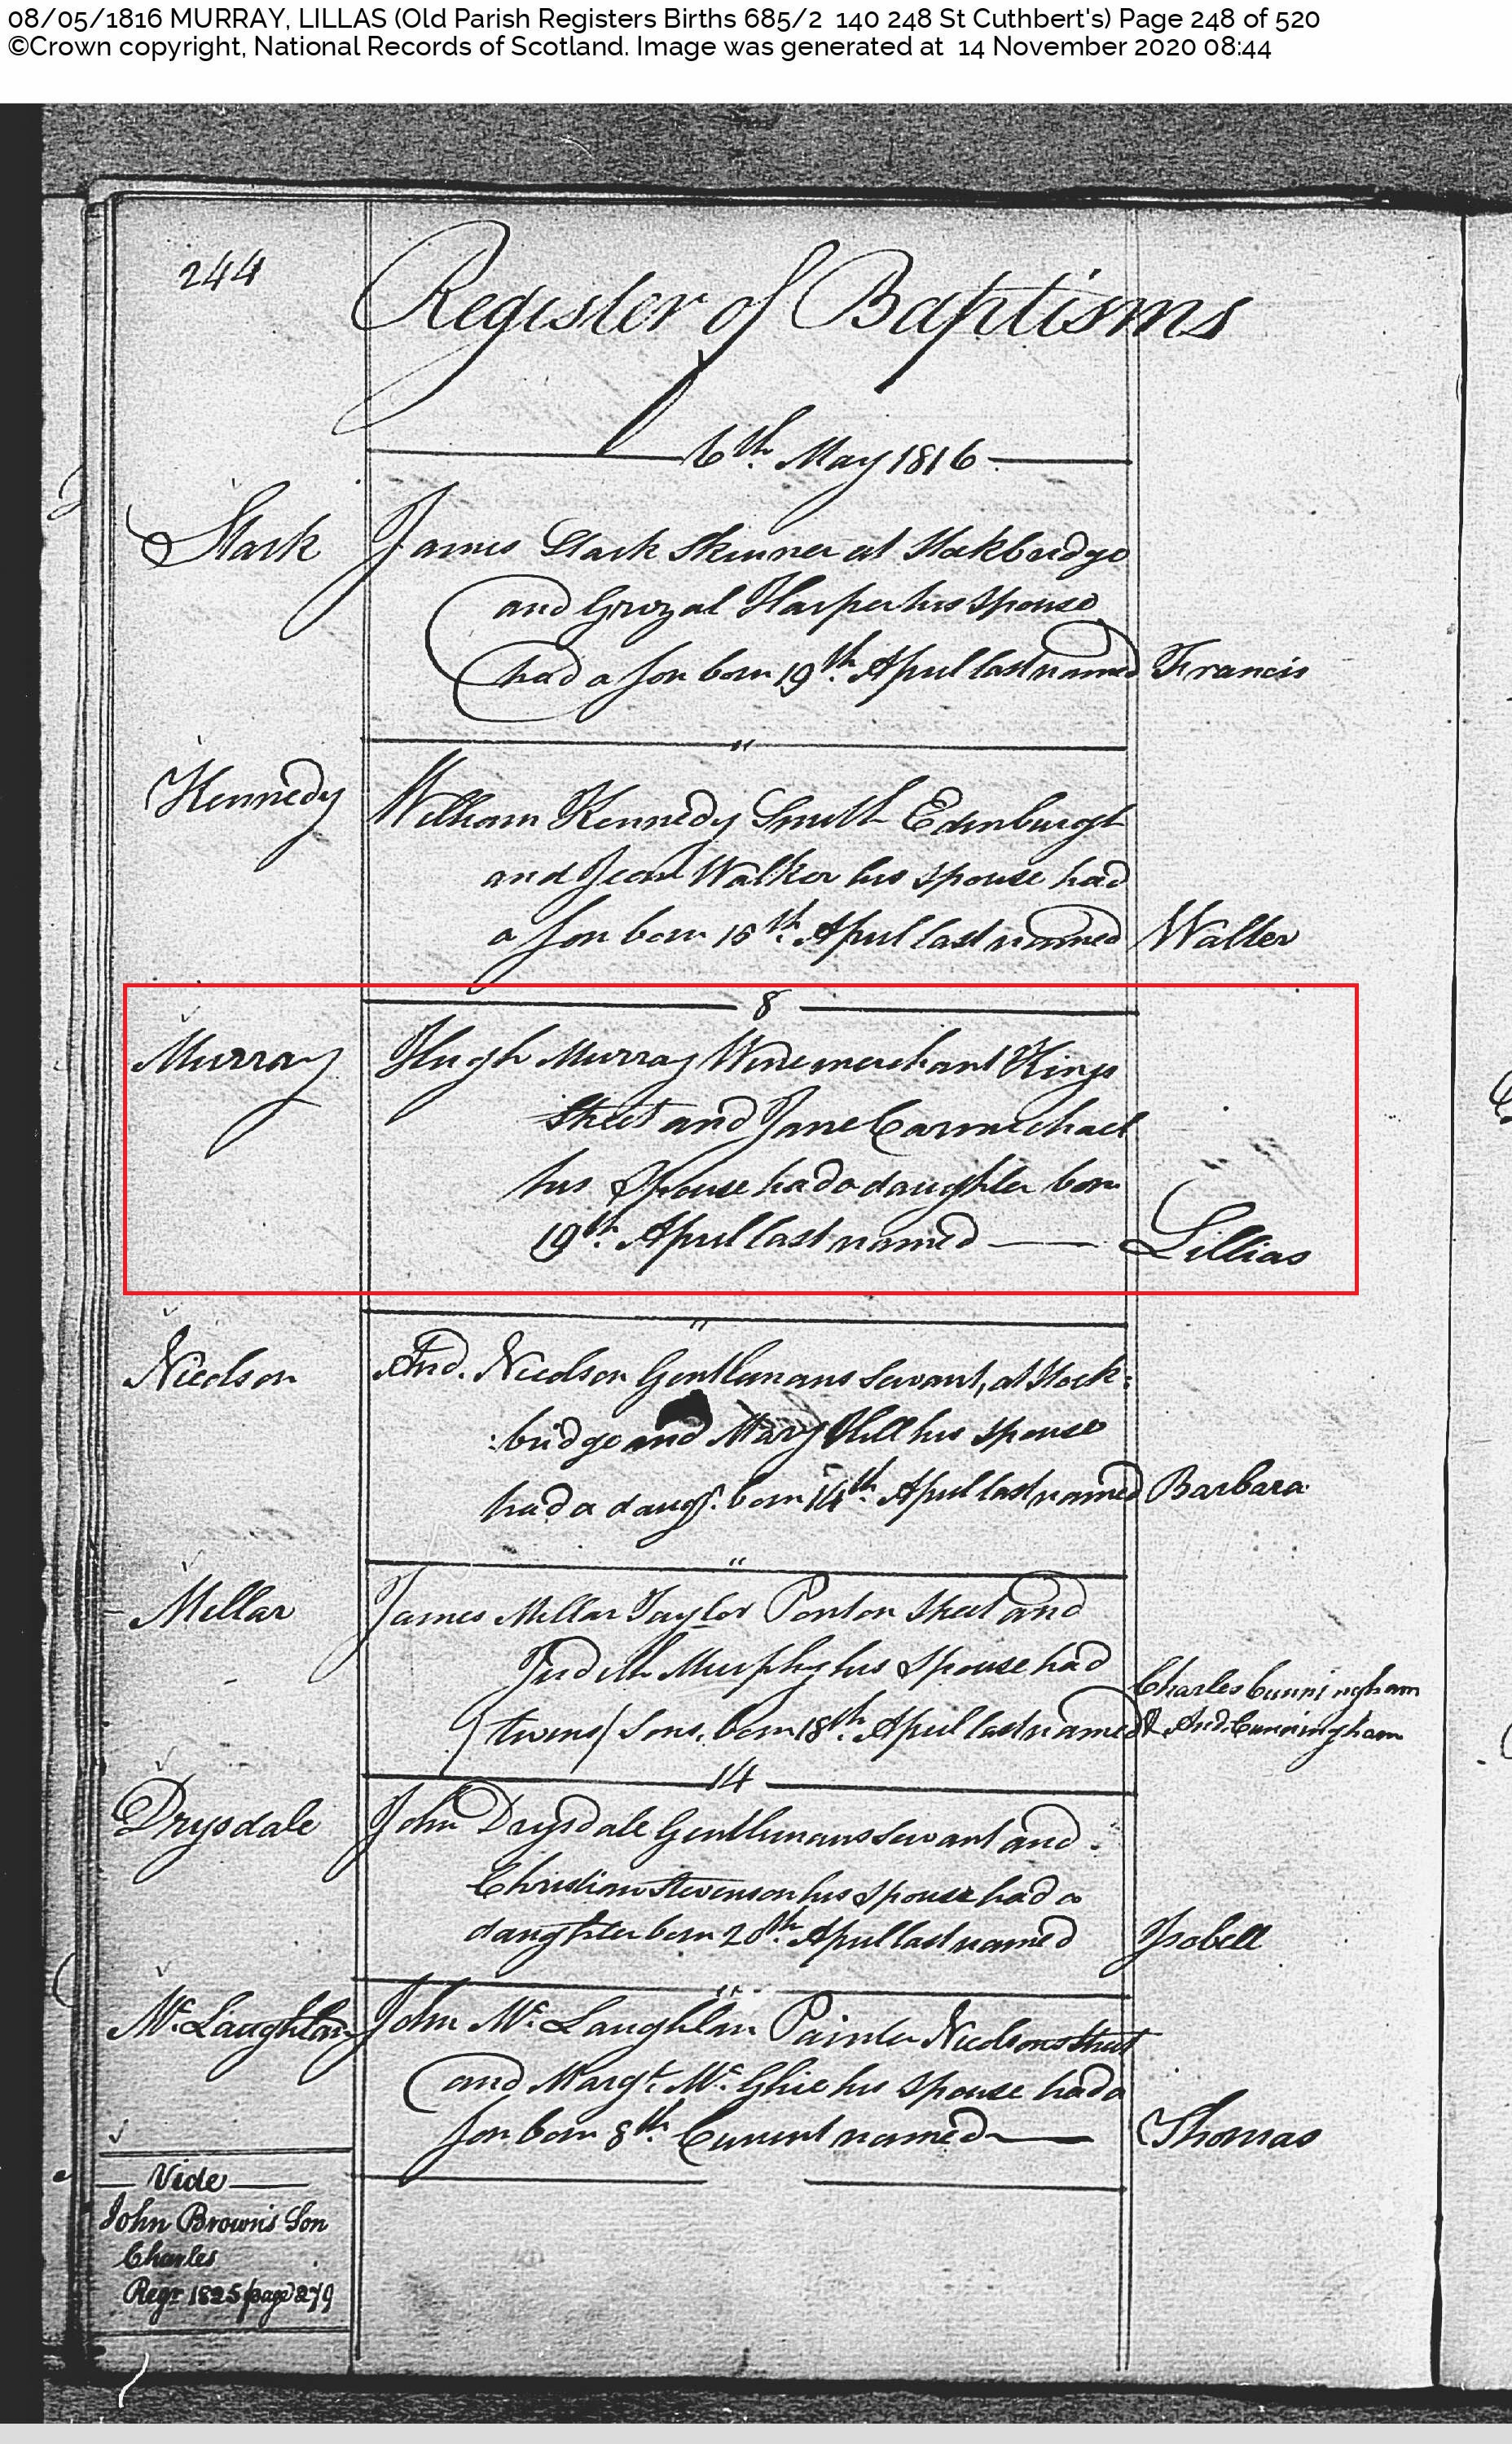 08/05/1816 MURRAY, LILLAS (Old Parish Registers Births 685/2 140 248 St Cuthbert's) Page 248 of 520
©Crown copyright, National Records of Scotland. Image was generated at 14 November 2020 08:44
244
Register of Baptisms
6th. May 1816
Stark James Stark Skinner at Stockbridge
and Grizal Harper his spouse
had a son born 19th. April last named Francis
"
Kennedy William Kennedy Smith Edinburgh
and Jean Walker his spouse had
a son born 15th. April last named Walter
8
Murray Hugh Murray Wine merchant Kings
Street and Jane Carmichael
his Spouse had a daughter born
19th. April last named Lillias
"
Nicolson And. Nicolson Gentlemans servant, at Stock:
:bridge and Mary Hill his spouse
had a daugr. born 14th. April last named Barbara
"
Millar James Millar Taylor Ponton Street and
Judith Murphy his Spouse had Charles Cunningham
(twins) Sons, born 18th. April last named & And. Cunningham
14
Drysdale John Drysdale Gentlemans servant and
Christian Stevenson his spouse had a
daughter born 20th. April last named Isobell
"
Mc. Laughlan John Mc. Laughlan Painter Nicolsons Street
and Margt. Mc. Ghie his spouse had a
son born 8th. Current named Thomas
Vide
John Brown's Son
Charles
Regr. 1825 page 279